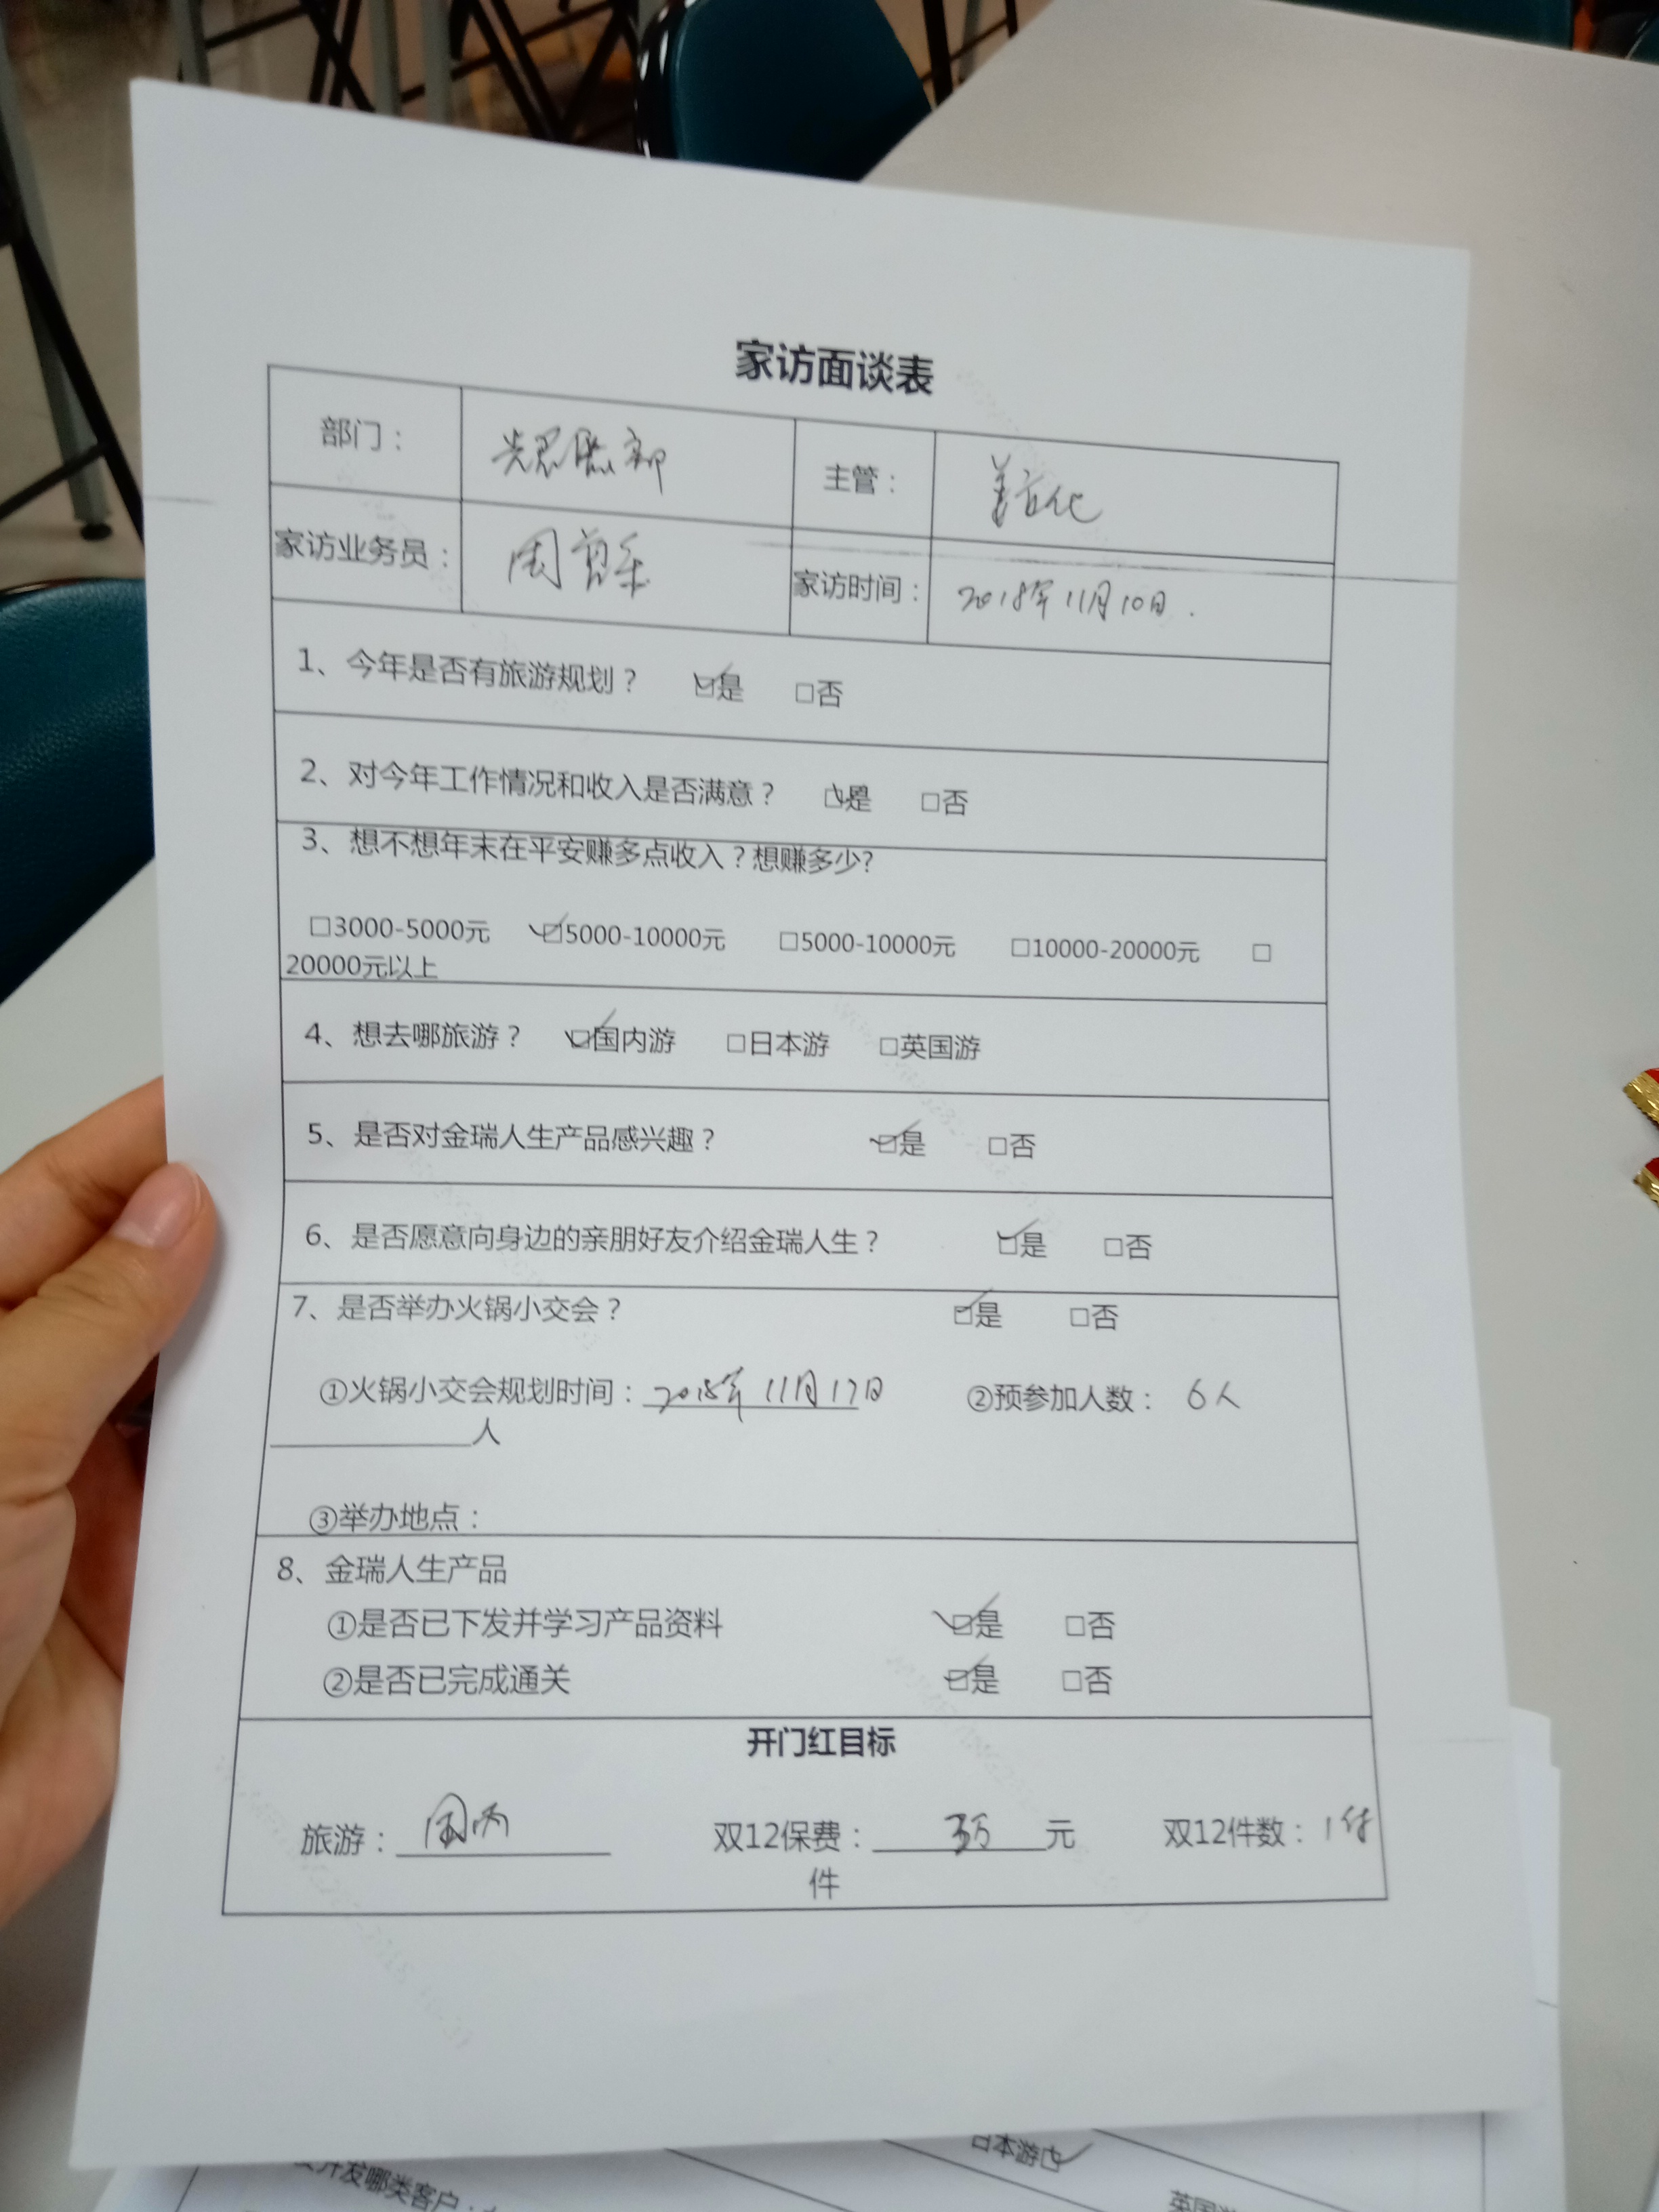 家访面谈表
部门：
主管：
家访业务员：周
家访时间：2018年11月10日.
1、今年是否有旅游规划？ ☑是 □否
2、对今年工作情况和收入是否满意？ ☑是 □否
3、想不想年末在平安赚多点收入？想赚多少?
□3000-5000元 ☑5000-10000元 □5000-10000元 □10000-20000元 □
20000元以上
4、想去哪旅游？ ☑国内游 □日本游 □英国游
5、是否对金瑞人生产品感兴趣？ ☑是 □否
6、是否愿意向身边的亲朋好友介绍金瑞人生？ ☑是 □否
7、是否举办火锅小交会？ ☑是 □否
①火锅小交会规划时间：2018年11月17日 ②预参加人数： 6人
人
③举办地点：
8、金瑞人生产品
①是否已下发并学习产品资料 ☑是 □否
②是否已完成通关 ☑是 □否
开门红目标
旅游：国内 双12保费：万元 双12件数：1件
件
日本游☑
开发哪类客户：
英国游